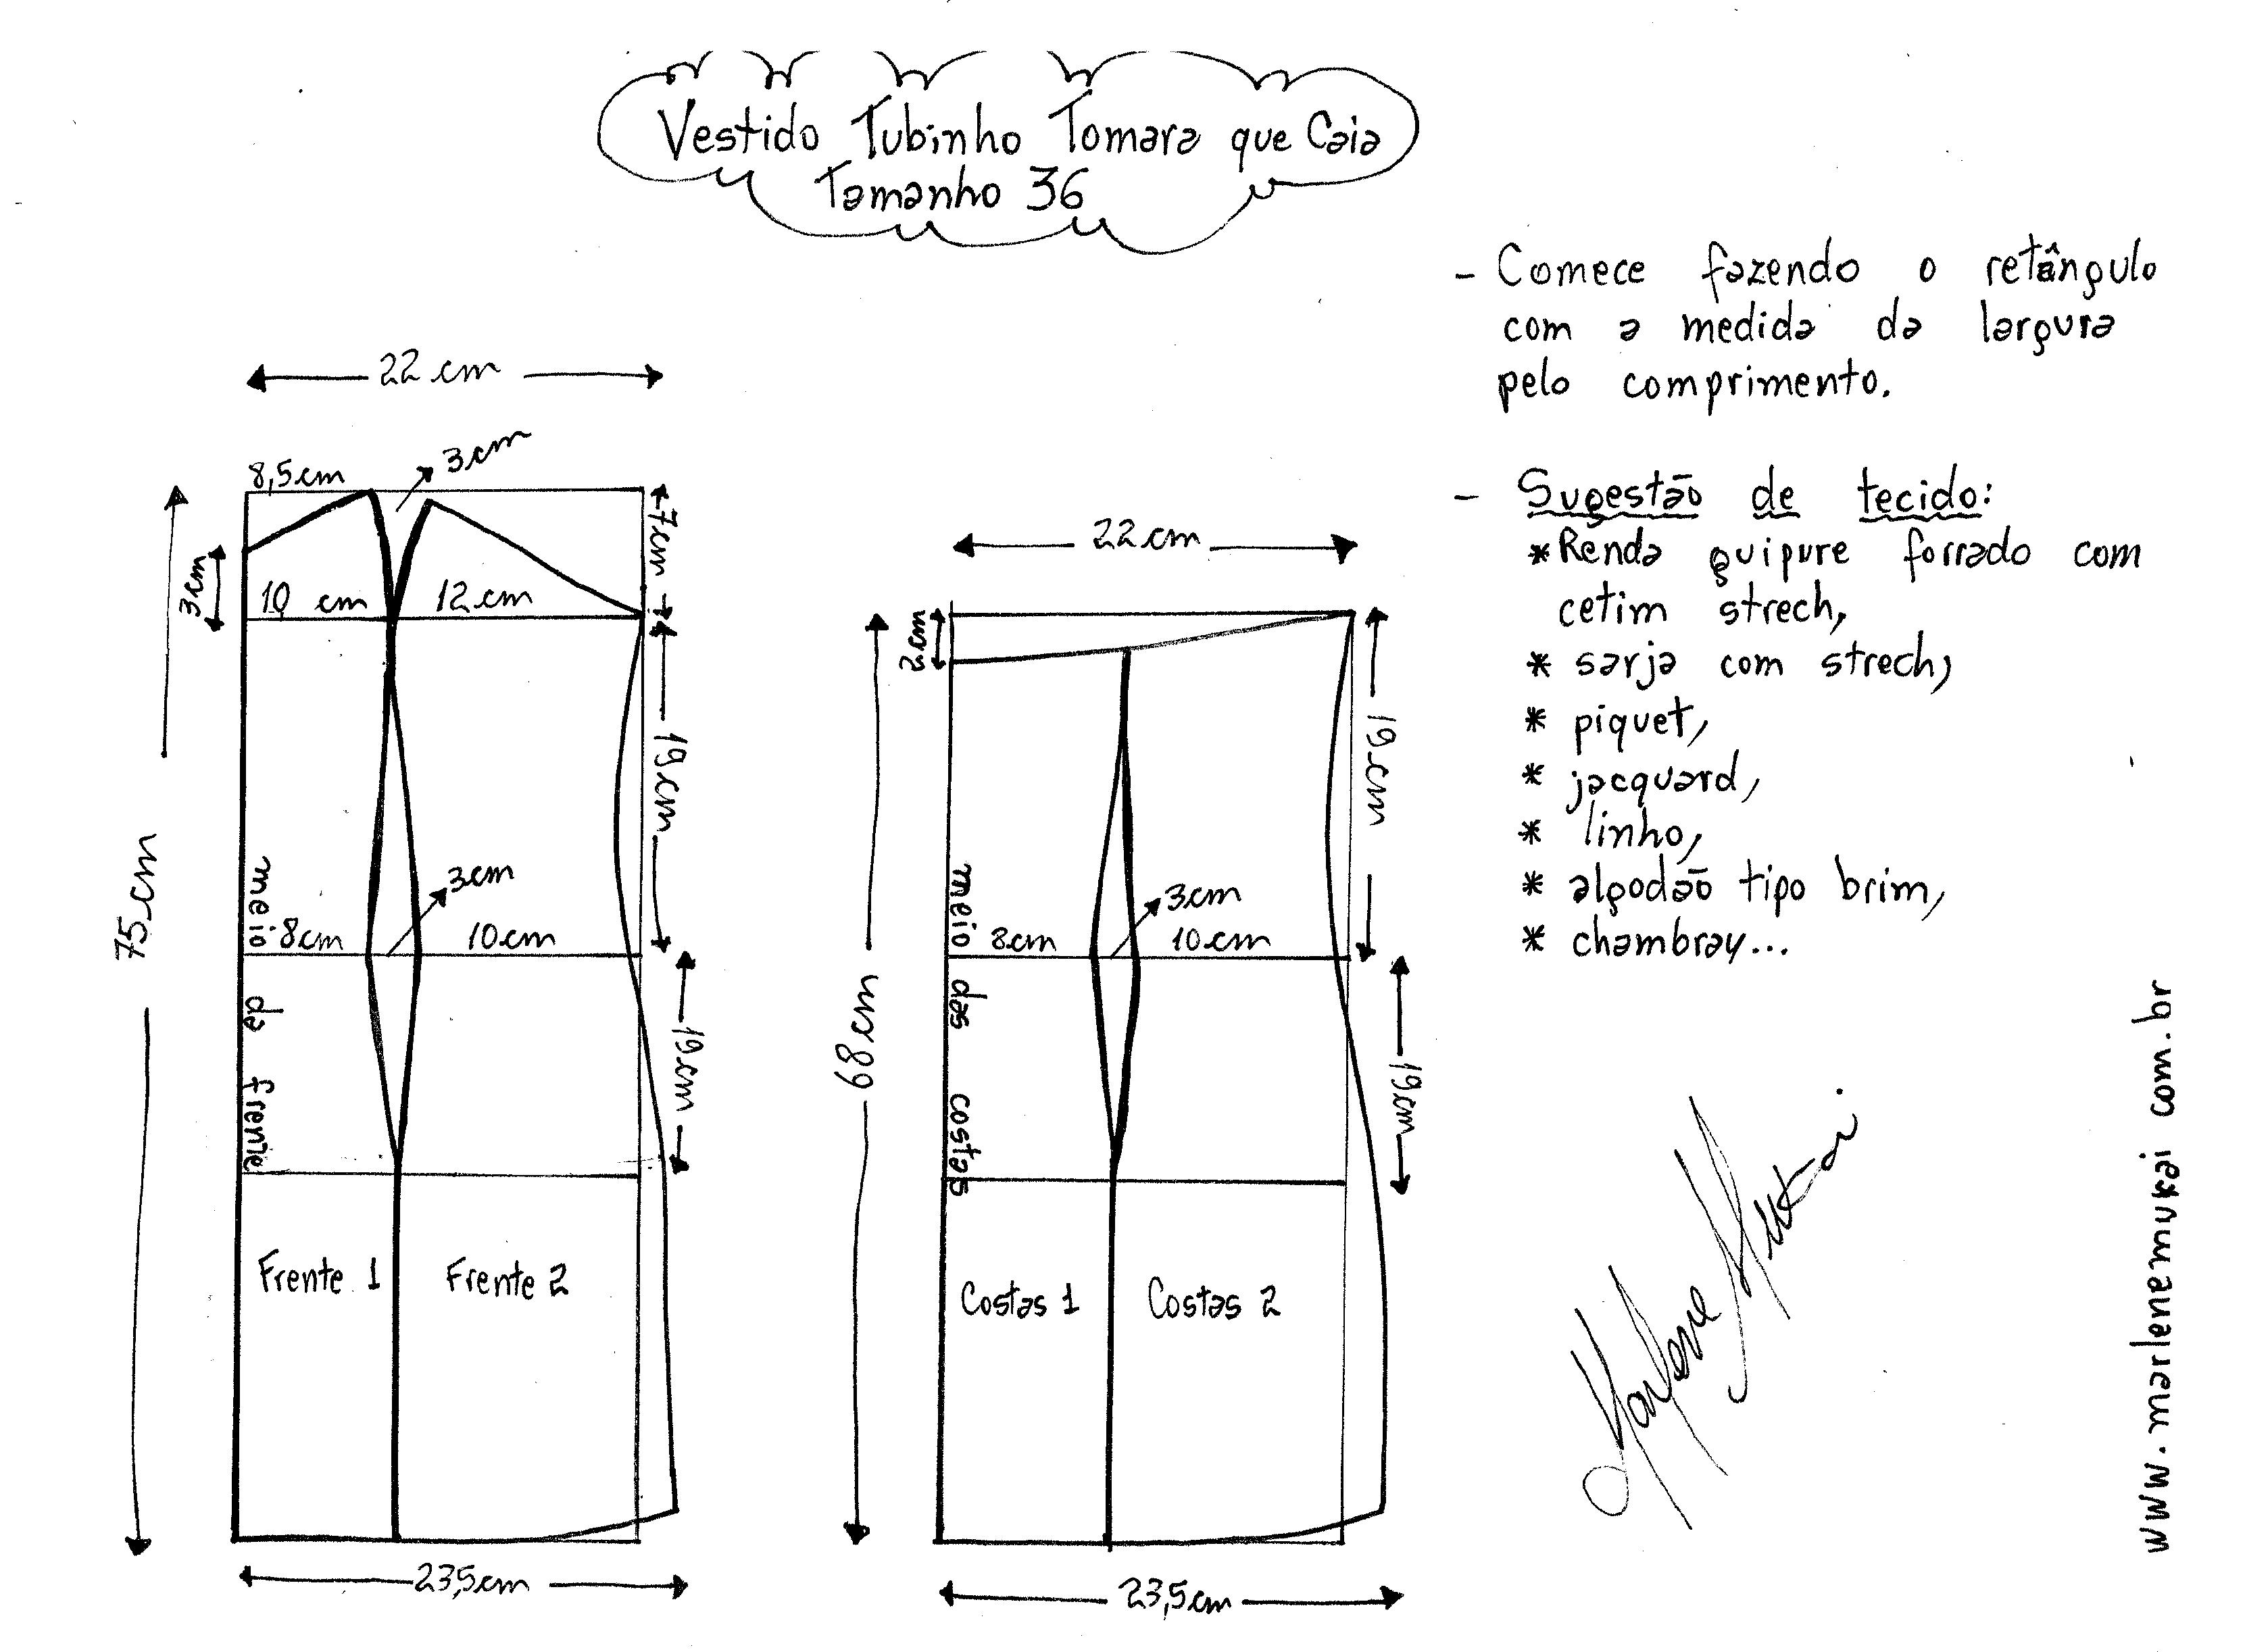 Vestido Tubinho Tomara que Caia
Tamanho 36
- Comece fazendo o retângulo
com a medida da largura
pelo comprimento.
- Sugestão de tecido:
* Renda guipure forrado com
cetim strech,
* sarja com strech,
* piquet,
* jacquard,
* linho,
* algodão tipo brim,
* chambray...
22 cm
8,5cm
3cm
7cm
3cm
10 cm
12cm
19cm
75cm
3cm
8cm
10cm
meio da frente
19cm
Frente 1
Frente 2
23,5cm
22cm
2cm
19cm
68cm
3cm
8cm
10cm
meio das costas
19cm
Costas 1
Costas 2
23,5cm
Marlene Mukai
www.marlenemukai com.br